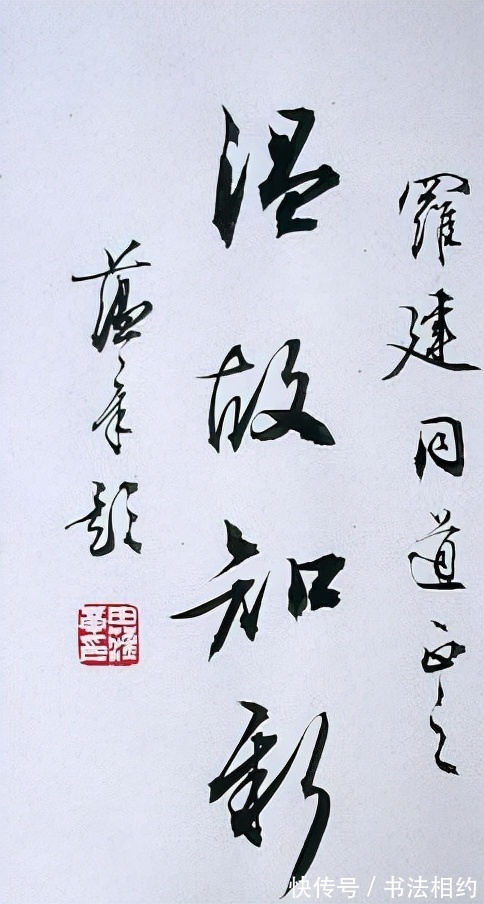 羅建同道正之
温故知新
蕴章题
快传号 / 书法相约